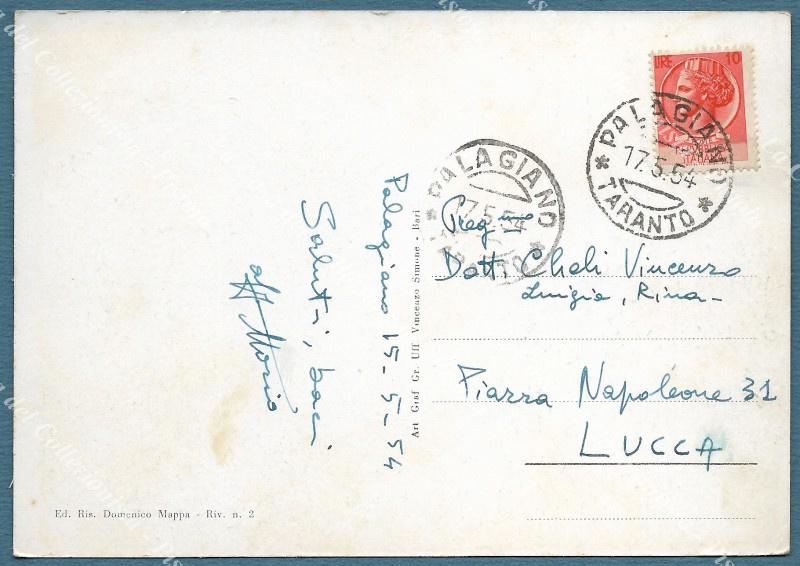 LIRE 10
PALAGIANO
17.5.54
* TARANTO *
PALAGIANO
17.5.54
* TARANTO *
Palagiano 15-5-54
Saluti, baci
aff Mario
Preg.mo
Dott. Cheli Vincenzo
Luigia, Rina -
Piazza Napoleone 31
LUCCA
Art Graf Gr. Uff Vincenzo Simone - Bari
Ed. Ris. Domenico Mappa - Riv. n. 2